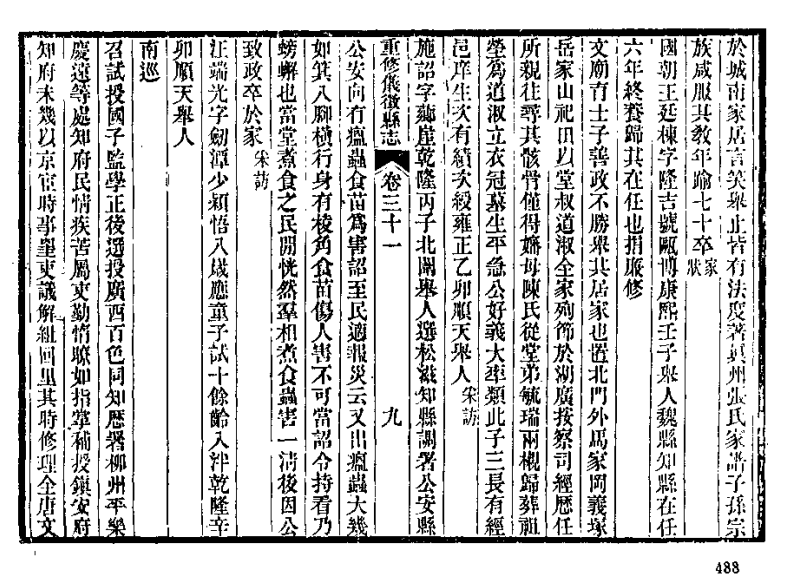 於城南家居言笑舉止皆有法度著眞州張氏家譜子孫宗
族咸服其教年踰七十卒家狀
國朝王廷棟字隆吉號甌博康熙壬子舉人魏縣知縣在任
六年終養歸其在任也捐廉修
文廟育士子善政不勝舉其居家也置北門外馬家岡義塚
岳家山祀田以堂叔道淑全家殉節於湖廣按察司經歷任
所親往尋其骸骨僅得嬸母陳氏從堂弟毓瑞兩櫬歸葬祖
塋爲道淑立衣冠墓生平急公好義大率類此子三長有經
邑庠生次有績次綬雍正乙卯順天舉人宋訪
施詔字 崖乾隆丙子北闈舉人選松滋知縣調署公安縣
重修儀徵縣志 卷三十一 九
公安向有瘟蟲食苗爲害詔至民適報災云又出瘟蟲大幾
如箕八腳橫行身有稜角食苗傷人害不可當詔令持看乃
螃蠏也當堂煮食之民間恍然羣相煮食蟲害一淸後因公
致政卒於家宋訪
汪端光字劒潭少穎悟八歲應童子試十餘齡入泮乾隆辛
卯順天舉人
南巡
召試授國子監學正後選授廣西百色同知歷署柳州平樂
慶遠等處知府民情疾苦屬吏勤惰瞭如指掌補授鎭安府
知府未幾以京官時事罣吏議解組回里其時修理全唐文
488